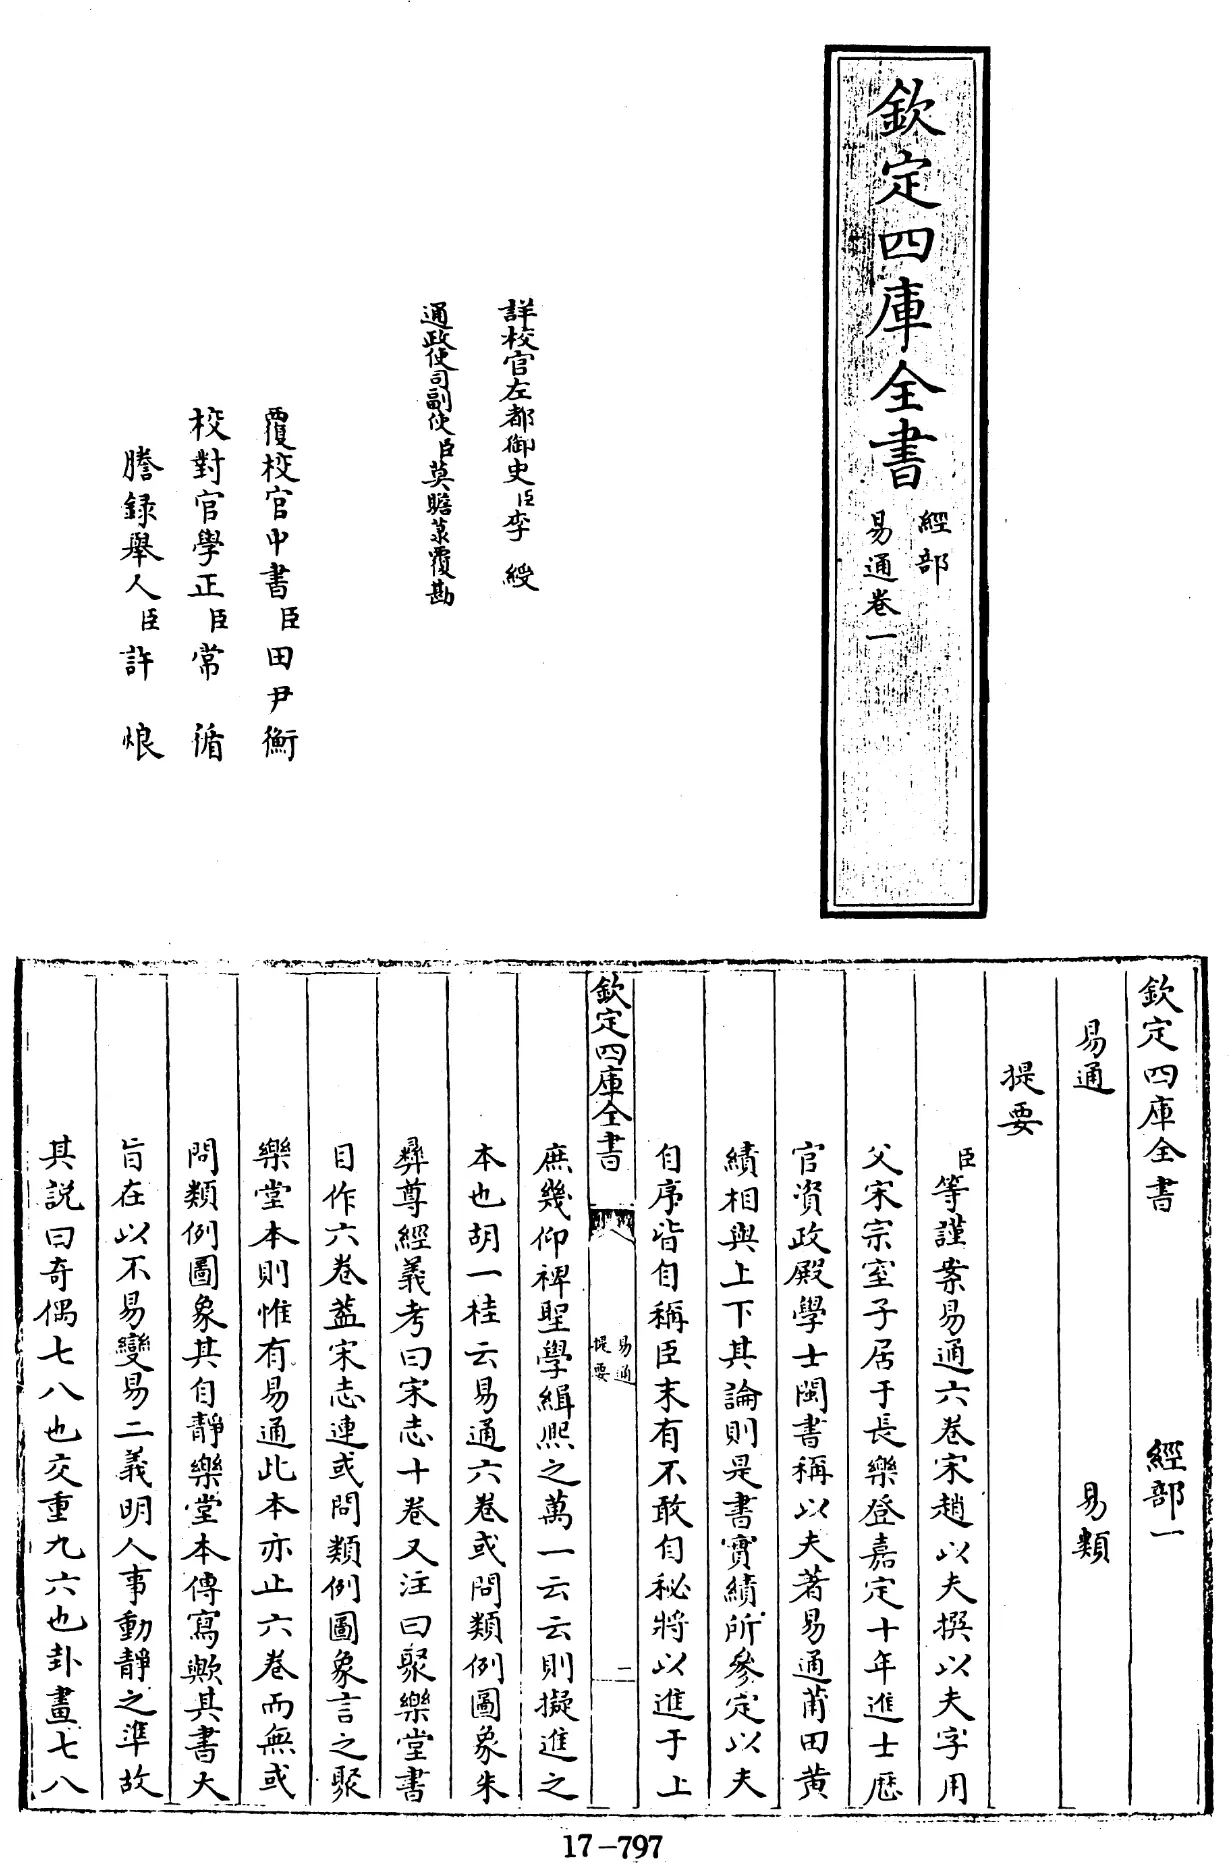 欽定四庫全書
經部
易通卷一
詳校官左都御史臣李綬
通政使司副使臣莫瞻菉覆勘
覆校官中書臣田尹衡
校對官學正臣常循
謄錄舉人臣許烺
欽定四庫全書 經部一
易通 易類
提要
臣等謹案易通六卷宋趙以夫撰以夫字用
父宋宗室子居于長樂登嘉定十年進士歴
官資政殿學士閩書稱以夫著易通莆田黄
績相與上下其論則是書實績所參定以夫
自序皆自稱臣末有不敢自秘將以進于上
欽定四庫全書
易通
提要
二
庶幾仰裨聖學緝熙之萬一云云則擬進之
本也胡一桂云易通六卷或問類例圖象朱
彝尊經義考曰宋志十卷又注曰聚樂堂書
目作六卷葢宋志連或問類例圖象言之聚
樂堂本則惟有易通此本亦止六卷而無或
問類例圖象其自靜樂堂本傳寫歟其書大
旨在以不易變易二義明人事動靜之準故
其説曰奇偶七八也交重九六也卦畫七八
17-797